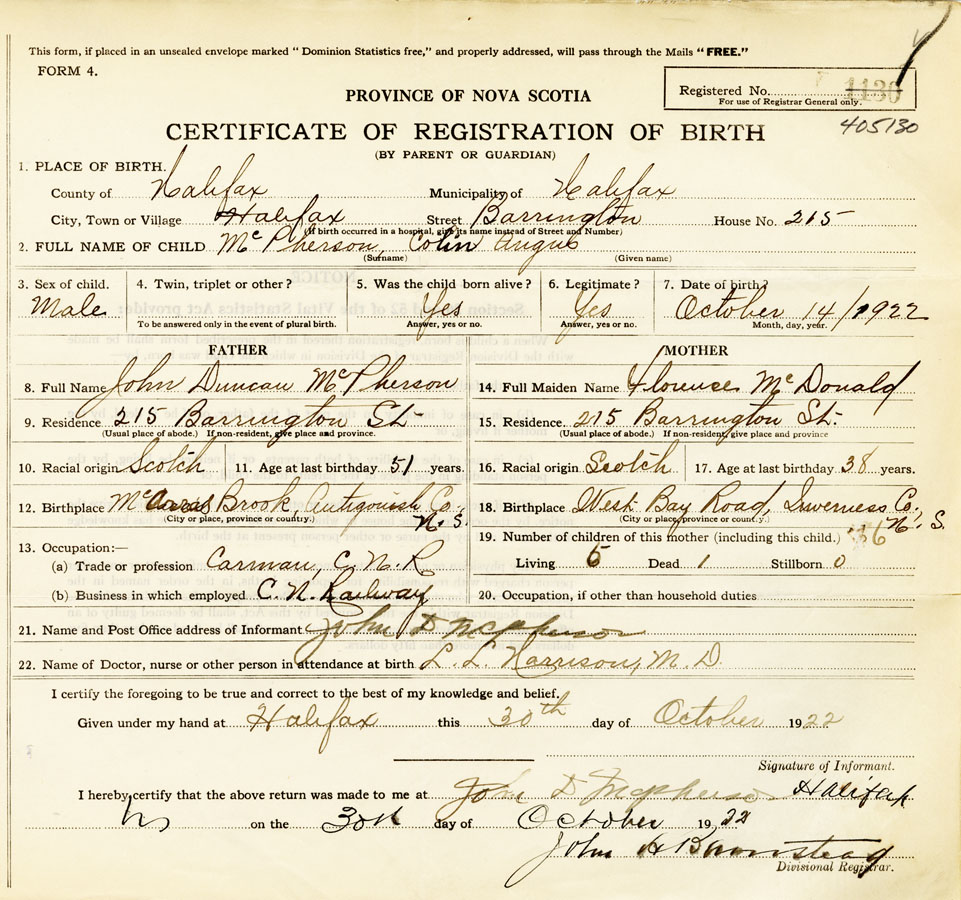 This form, if placed in an unsealed envelope marked " Dominion Statistics free," and properly addressed, will pass through the Mails " FREE."
FORM 4.
Registered No. 1130
For use of Registrar General only.
405130
PROVINCE OF NOVA SCOTIA
CERTIFICATE OF REGISTRATION OF BIRTH
(BY PARENT OR GUARDIAN)
1. PLACE OF BIRTH.
County of Halifax Municipality of Halifax
City, Town or Village Halifax Street Barrington House No. 215
(If birth occurred in a hospital, give its name instead of Street and Number)
2. FULL NAME OF CHILD McPherson, Colin Angus
(Surname) (Given name)
3. Sex of child. 4. Twin, triplet or other? 5. Was the child born alive? 6. Legitimate? 7. Date of birth?
Male Yes Yes October 14/1922
To be answered only in the event of plural birth. Answer, yes or no. Answer, yes or no. Month, day, year.
FATHER MOTHER
8. Full Name John Duncan McPherson 14. Full Maiden Name Florence McDonald
9. Residence 215 Barrington St. 15. Residence 215 Barrington St.
(Usual place of abode.) If non-resident, give place and province. (Usual place of abode.) If non-resident, give place and province
10. Racial origin Scotch 11. Age at last birthday 51 years. 16. Racial origin Scotch 17. Age at last birthday 38 years.
12. Birthplace Brook, Antigonish Co. N. S. 18. Birthplace West Bay Road, Inverness Co. N. S.
(City or place, province or country.) (City or place, province or country.)
13. Occupation:— 19. Number of children of this mother (including this child.) 6
(a) Trade or profession Carman, C. N. R Living 5 Dead 1 Stillborn 0
(b) Business in which employed C. N. Railway 20. Occupation, if other than household duties
21. Name and Post Office address of Informant John D McPherson
22. Name of Doctor, nurse or other person in attendance at birth L. L. Harrison, M. D.
I certify the foregoing to be true and correct to the best of my knowledge and belief.
Given under my hand at Halifax this 30th day of October 1922
Signature of Informant.
I hereby certify that the above return was made to me at John D McPherson Halifax
on the 30th day of October 1922
John H
Divisional Registrar.